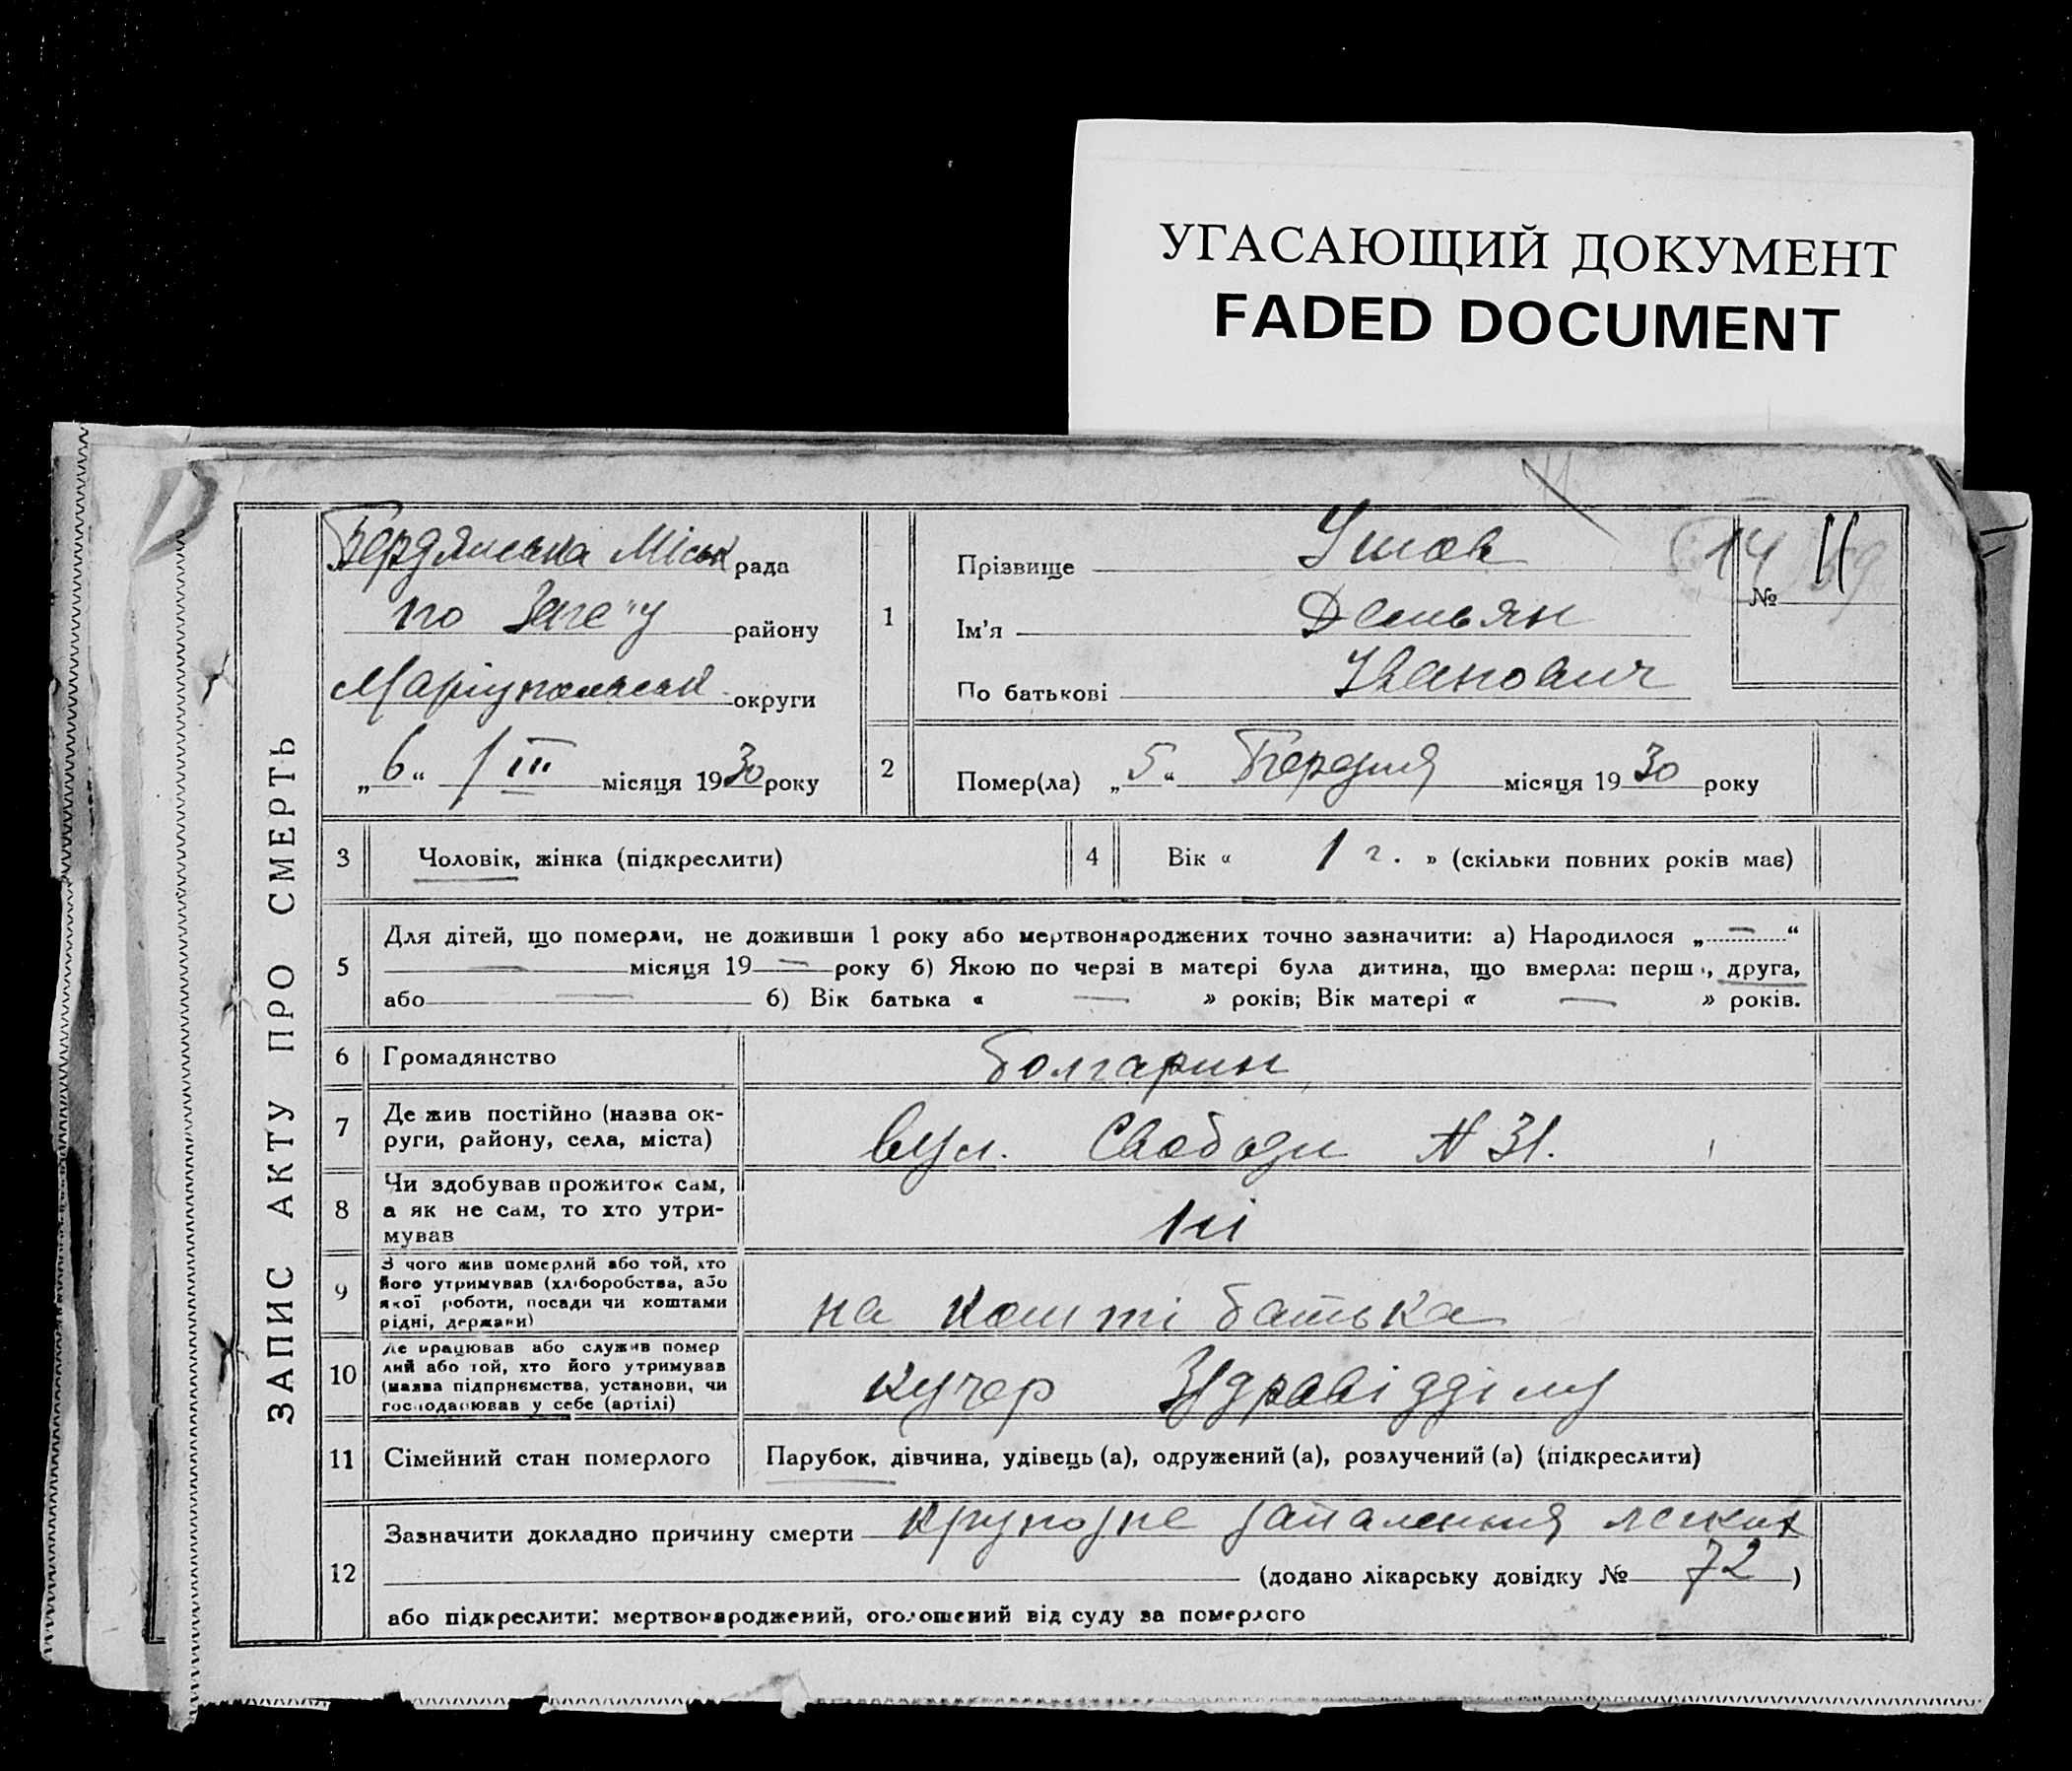 УГАСАЮЩИЙ ДОКУМЕНТ
FADED DOCUMENT
ЗАПИС АКТУ ПРО СМЕРТЬ
Бердянська Міськ рада
по Загс'у району
Маріупольськ округи
„6“ / III місяця 1930 року
1
Прізвище Ушов
Ім'я Демьян
По батькові Іванович
14 11
№
2
Помер(ла) „5“ Березня місяця 1930 року
3
Чоловік, жінка (підкреслити)
4
Вік « 1 г. » (скільки повних років має)
5
Для дітей, що померли, не доживши 1 року або мертвонароджених точно зазначити: а) Народилося „—“
— місяця 19 — року б) Якою по черзі в матері була дитина, що вмерла: перш , друга,
або — б) Вік батька « — » років; Вік матері « — » років.
6
Громадянство болгарин
7
Де жив постійно (назва ок-
руги, району, села, міста)
вул. Свободи N 31.
8
Чи здобував прожиток сам,
а як не сам, то хто утри-
мував
ні
9
З чого жив померлий або той, хто
його утримував (хліборобства, або
якої роботи, посади чи коштами
рідні, держави)
на кошті батька
10
Де працював або служив помер
лий або той, хто його утримував
(назва підприємства, установи, чи
господарював у себе (артілі)
кучер Здраввідділу
11
Сімейний стан померлого
Парубок, дівчина, удівець (а), одружений (а), розлучений (а) (підкреслити)
12
Зазначити докладно причину смерти крупозне запалення легких
(додано лікарську довідку № 72 )
або підкреслити: мертвонароджений, оголошений від суду за померлого